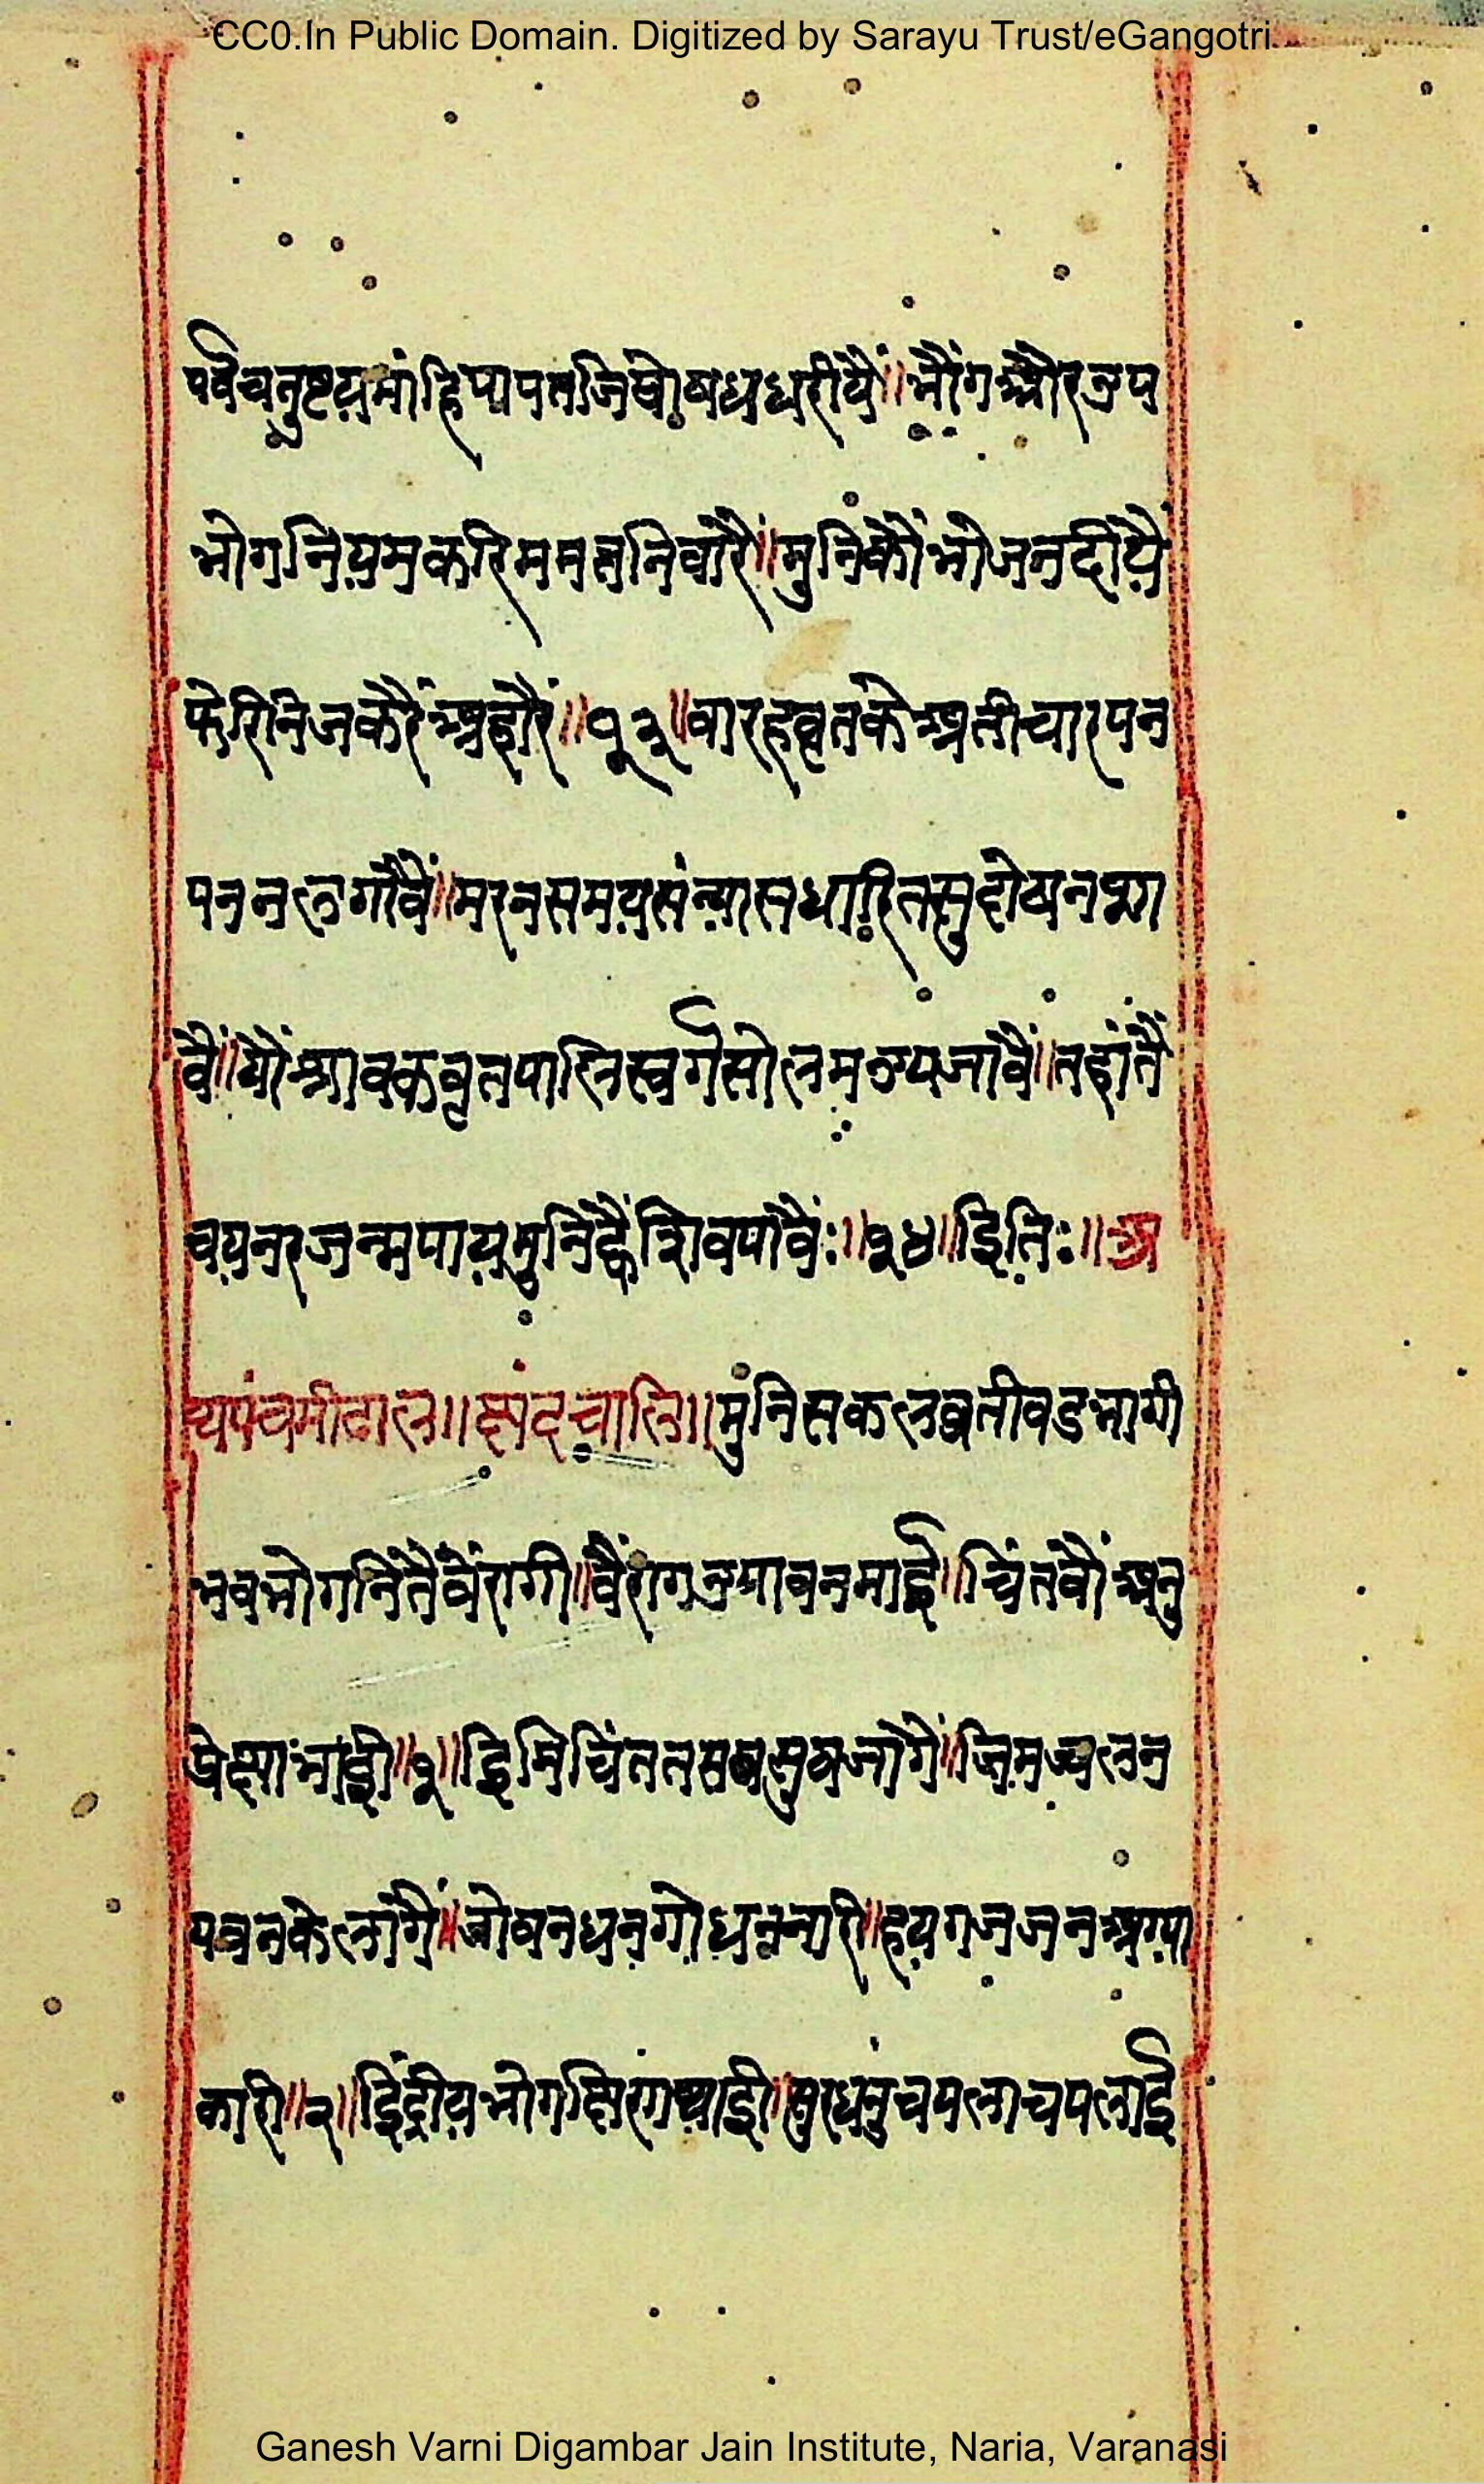 CC0.In Public Domain. Digitized by Sarayu Trust/eGangotri
पर्वचतुष्टयमांहिपापतजिपोषधधरीयैं॥भोगऔरउप
भोगनियमकरिममतनिवारैं॥मुनिकौंभोजनदीयै
फेरिनिजकरैंअहारैं॥१३॥बारहव्रतकेअतीचारपन
पननलगावैं॥मरनसमयसंन्यासधारितसुदोषनशा
वैं॥योंश्रावकवृतपालिस्वर्गसोलमउपजावैं॥तहांतैं
चयनरजन्मपायमुनिह्वैशिवपावैं:॥१४॥इति:॥अ
थपंचमीढाल॥छंदचालि॥मुंनिसकलव्रतीवडभागी
भवभोगनितैंवैरागी॥वैरागउपावनमाई॥चिंतवौंअनु
प्रेक्षाभाई॥१॥इमिचिंततसबसुषजागैं॥जिमज्वलन
पवनकेलागैं॥जोवनधनगोधननारी॥हयगजजनअग्या
कारी॥२॥इंद्रीयभोगछिरंगथाई॥सुरधनुंचपलाचपलाई
Ganesh Varni Digambar Jain Institute, Naria, Varanasi